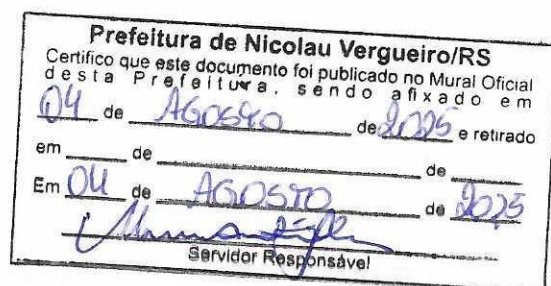 Prefeitura de Nicolau Vergueiro/RS
Certifico que este documento foi publicado no Mural Oficial
desta Prefeitura, sendo afixado em
04 de AGOSTO de 2025 e retirado
em ______ de ____________ de ______
Em 04 de AGOSTO de 2025
Servidor Responsável